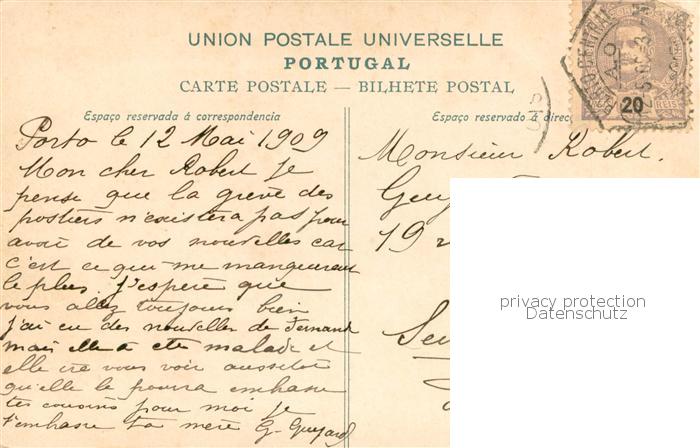 UNION POSTALE UNIVERSELLE
PORTUGAL
CARTE POSTALE — BILHETE POSTAL
Espaço reservada á correspondencia
Espaço reservado á direc
20
REIS
Porto le 12 Mai 1909
Mon cher Robert je
pense que la greve des
postiers n'existera pas pour
avoir de vos nouvelles car
c'est ce qui me manquerait
le plus. J'espère que
vous allez toujours bien
j'ai eu des nouvelles de Fernand
mais elle a ete malade et
elle ira vous voir aussitot
qu'elle le pourra embrasse
tes cousins pour moi je
t'embrasse ta mère G. Guyard
Monsieur Robert.
Guy
19
privacy protection
Datenschutz